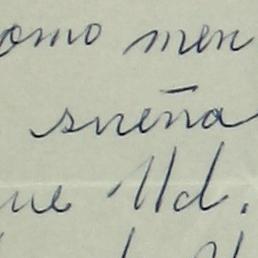 omo men
sueña
ue Ud.